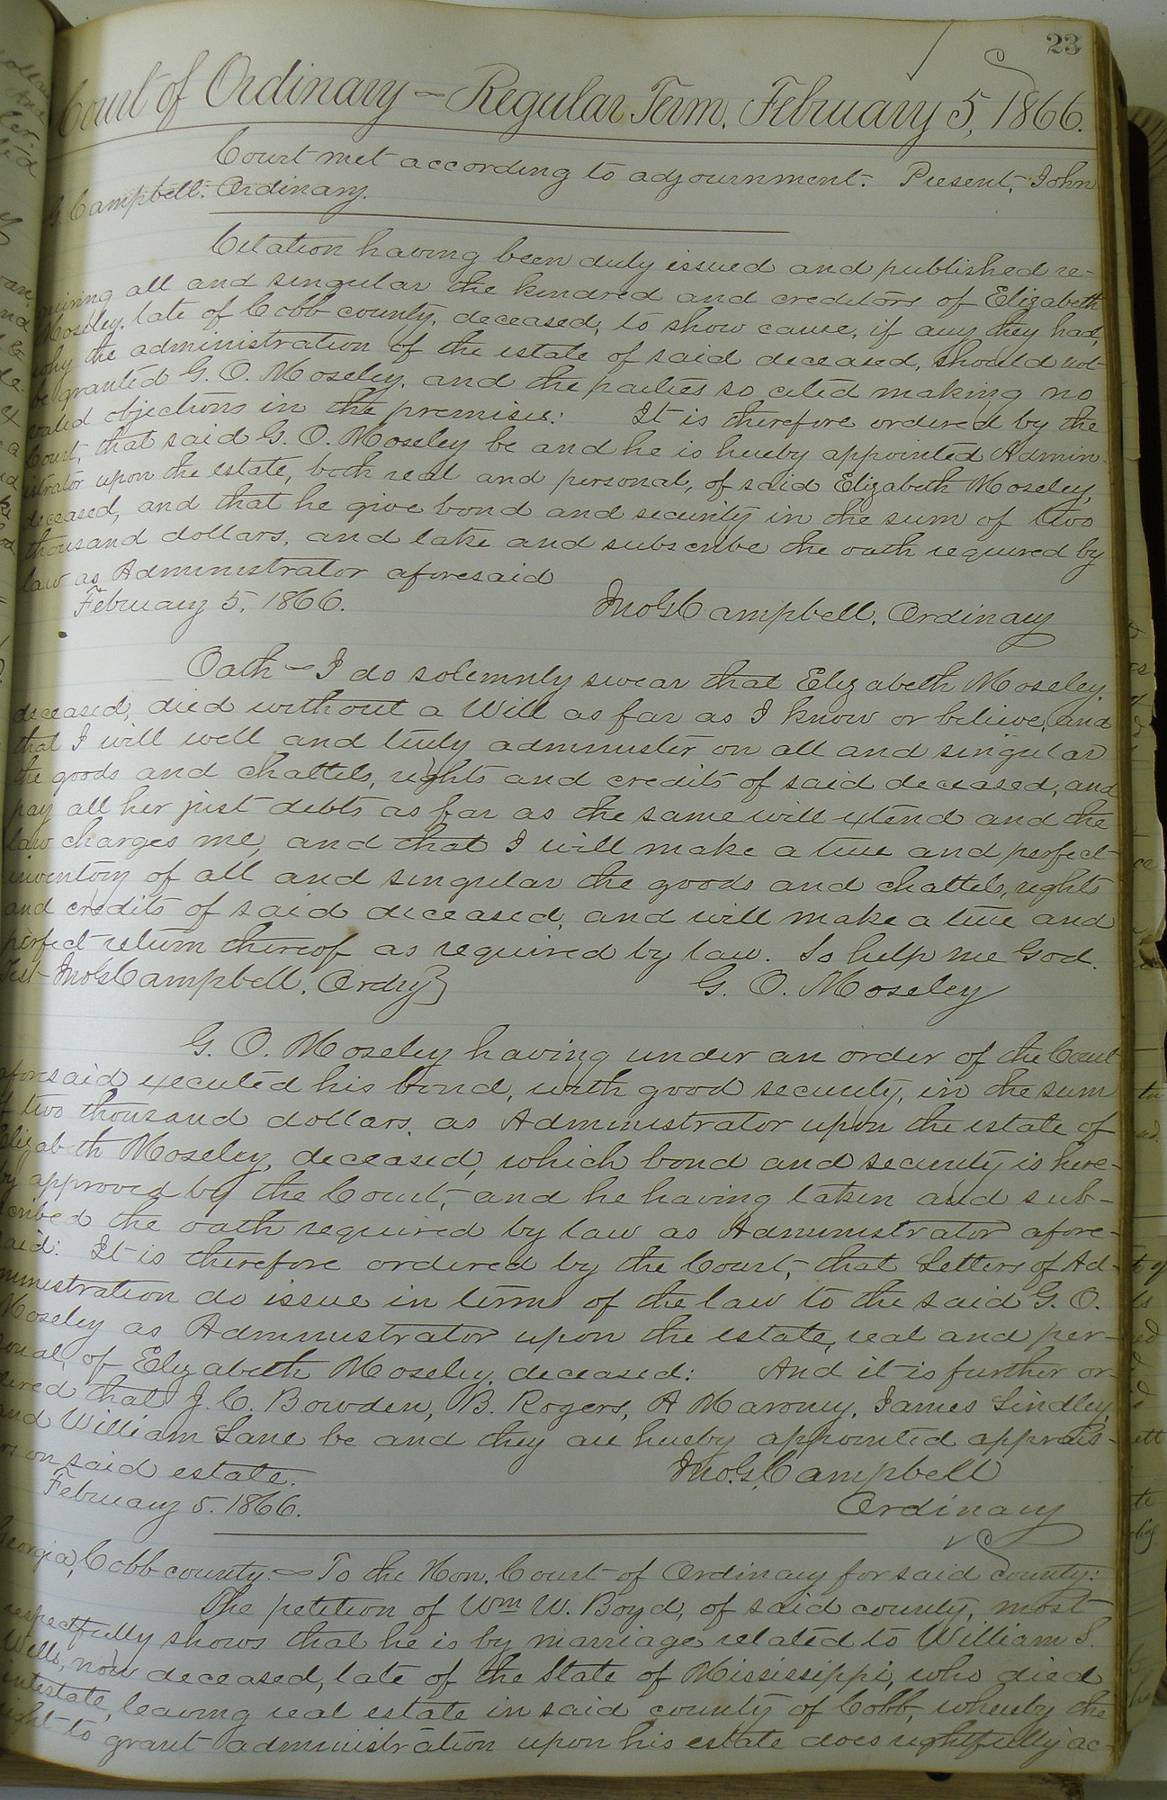 23
Court of Ordinary — Regular Term, February 5, 1866.
Court met according to adjournment. Present, John
G. Campbell. Ordinary.
Citation having been duly issued and published re-
quiring all and singular the kindred and creditors of Elizabeth
Moseley, late of Cobb county, deceased, to show cause, if any they had,
why the administration of the estate of said deceased, should not
be granted G. O. Moseley, and the parties so cited making no
valid objections in the premises: It is therefore ordered by the
Court, that said G. O. Moseley be and he is hereby appointed Admin-
istrator upon the estate, both real and personal, of said Elizabeth Moseley,
deceased, and that he give bond and security in the sum of two
thousand dollars, and take and subscribe the oath required by
law as Administrator aforesaid
February 5, 1866. Jno. G. Campbell, Ordinary
Oath — I do solemnly swear that Elizabeth Moseley,
deceased, died without a Will as far as I know or believe, and
that I will well and truly administer on all and singular
the goods and chattels, rights and credits of said deceased, and
pay all her just debts as far as the same will extend and the
law charges me, and that I will make a true and perfect
inventory of all and singular the goods and chattels, rights
and credits of said deceased, and will make a true and
perfect return thereof as required by law. So help me God.
Test Jno. G. Campbell, Ordry } G. O. Moseley
G. O. Moseley having under an order of the Court
aforesaid, executed his bond, with good security, in the sum
of two thousand dollars, as Administrator upon the estate of
Elizabeth Moseley, deceased, which bond and security is here-
by approved by the Court, and he having taken and sub-
scribed the oath required by law as Administrator afore-
said: It is therefore ordered by the Court, that Letters of Ad-
ministration do issue in terms of the law to the said G. O.
Moseley as Administrator upon the estate, real and per-
sonal, of Elizabeth Moseley, deceased: And it is further or-
dered that J. C. Bowden, B. Rogers, A Maroney, James Lindley,
and William Lane be and they are hereby appointed apprais-
ers on said estate. Jno. G. Campbell
February 5. 1866. Ordinary
Georgia, Cobb county. — To the Hon. Court of Ordinary for said county:
The petition of Wm W. Boyd, of said county, most
respectfully shows that he is by marriage related to William S.
Wells, now deceased, late of the State of Mississippi, who died
intestate, leaving real estate in said county of Cobb, whereby the
right to grant administration upon his estate does rightfully ac-